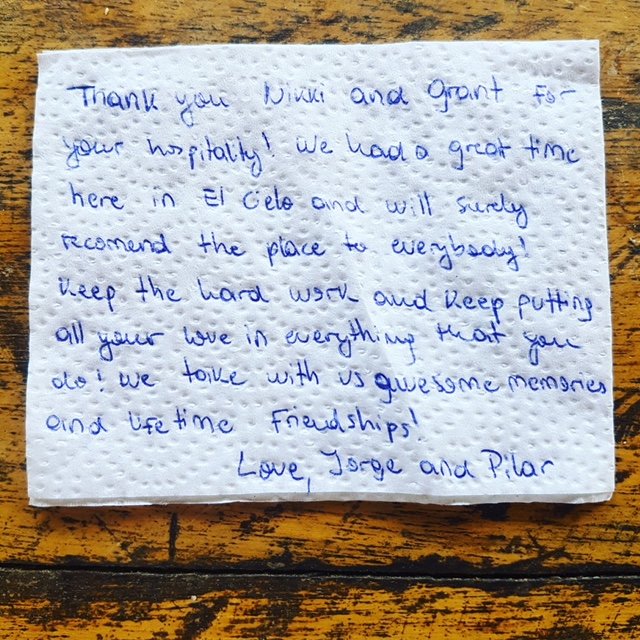 Thank you Nikki and Grant for
your hospitality! We had a great time
here in El Cielo and will surely
recomend the place to everybody!
Keep the hard work and keep putting
all your love in everything that you
do! We take with us awesome memories
and lifetime friendships!
Love, Jorge and Pilar